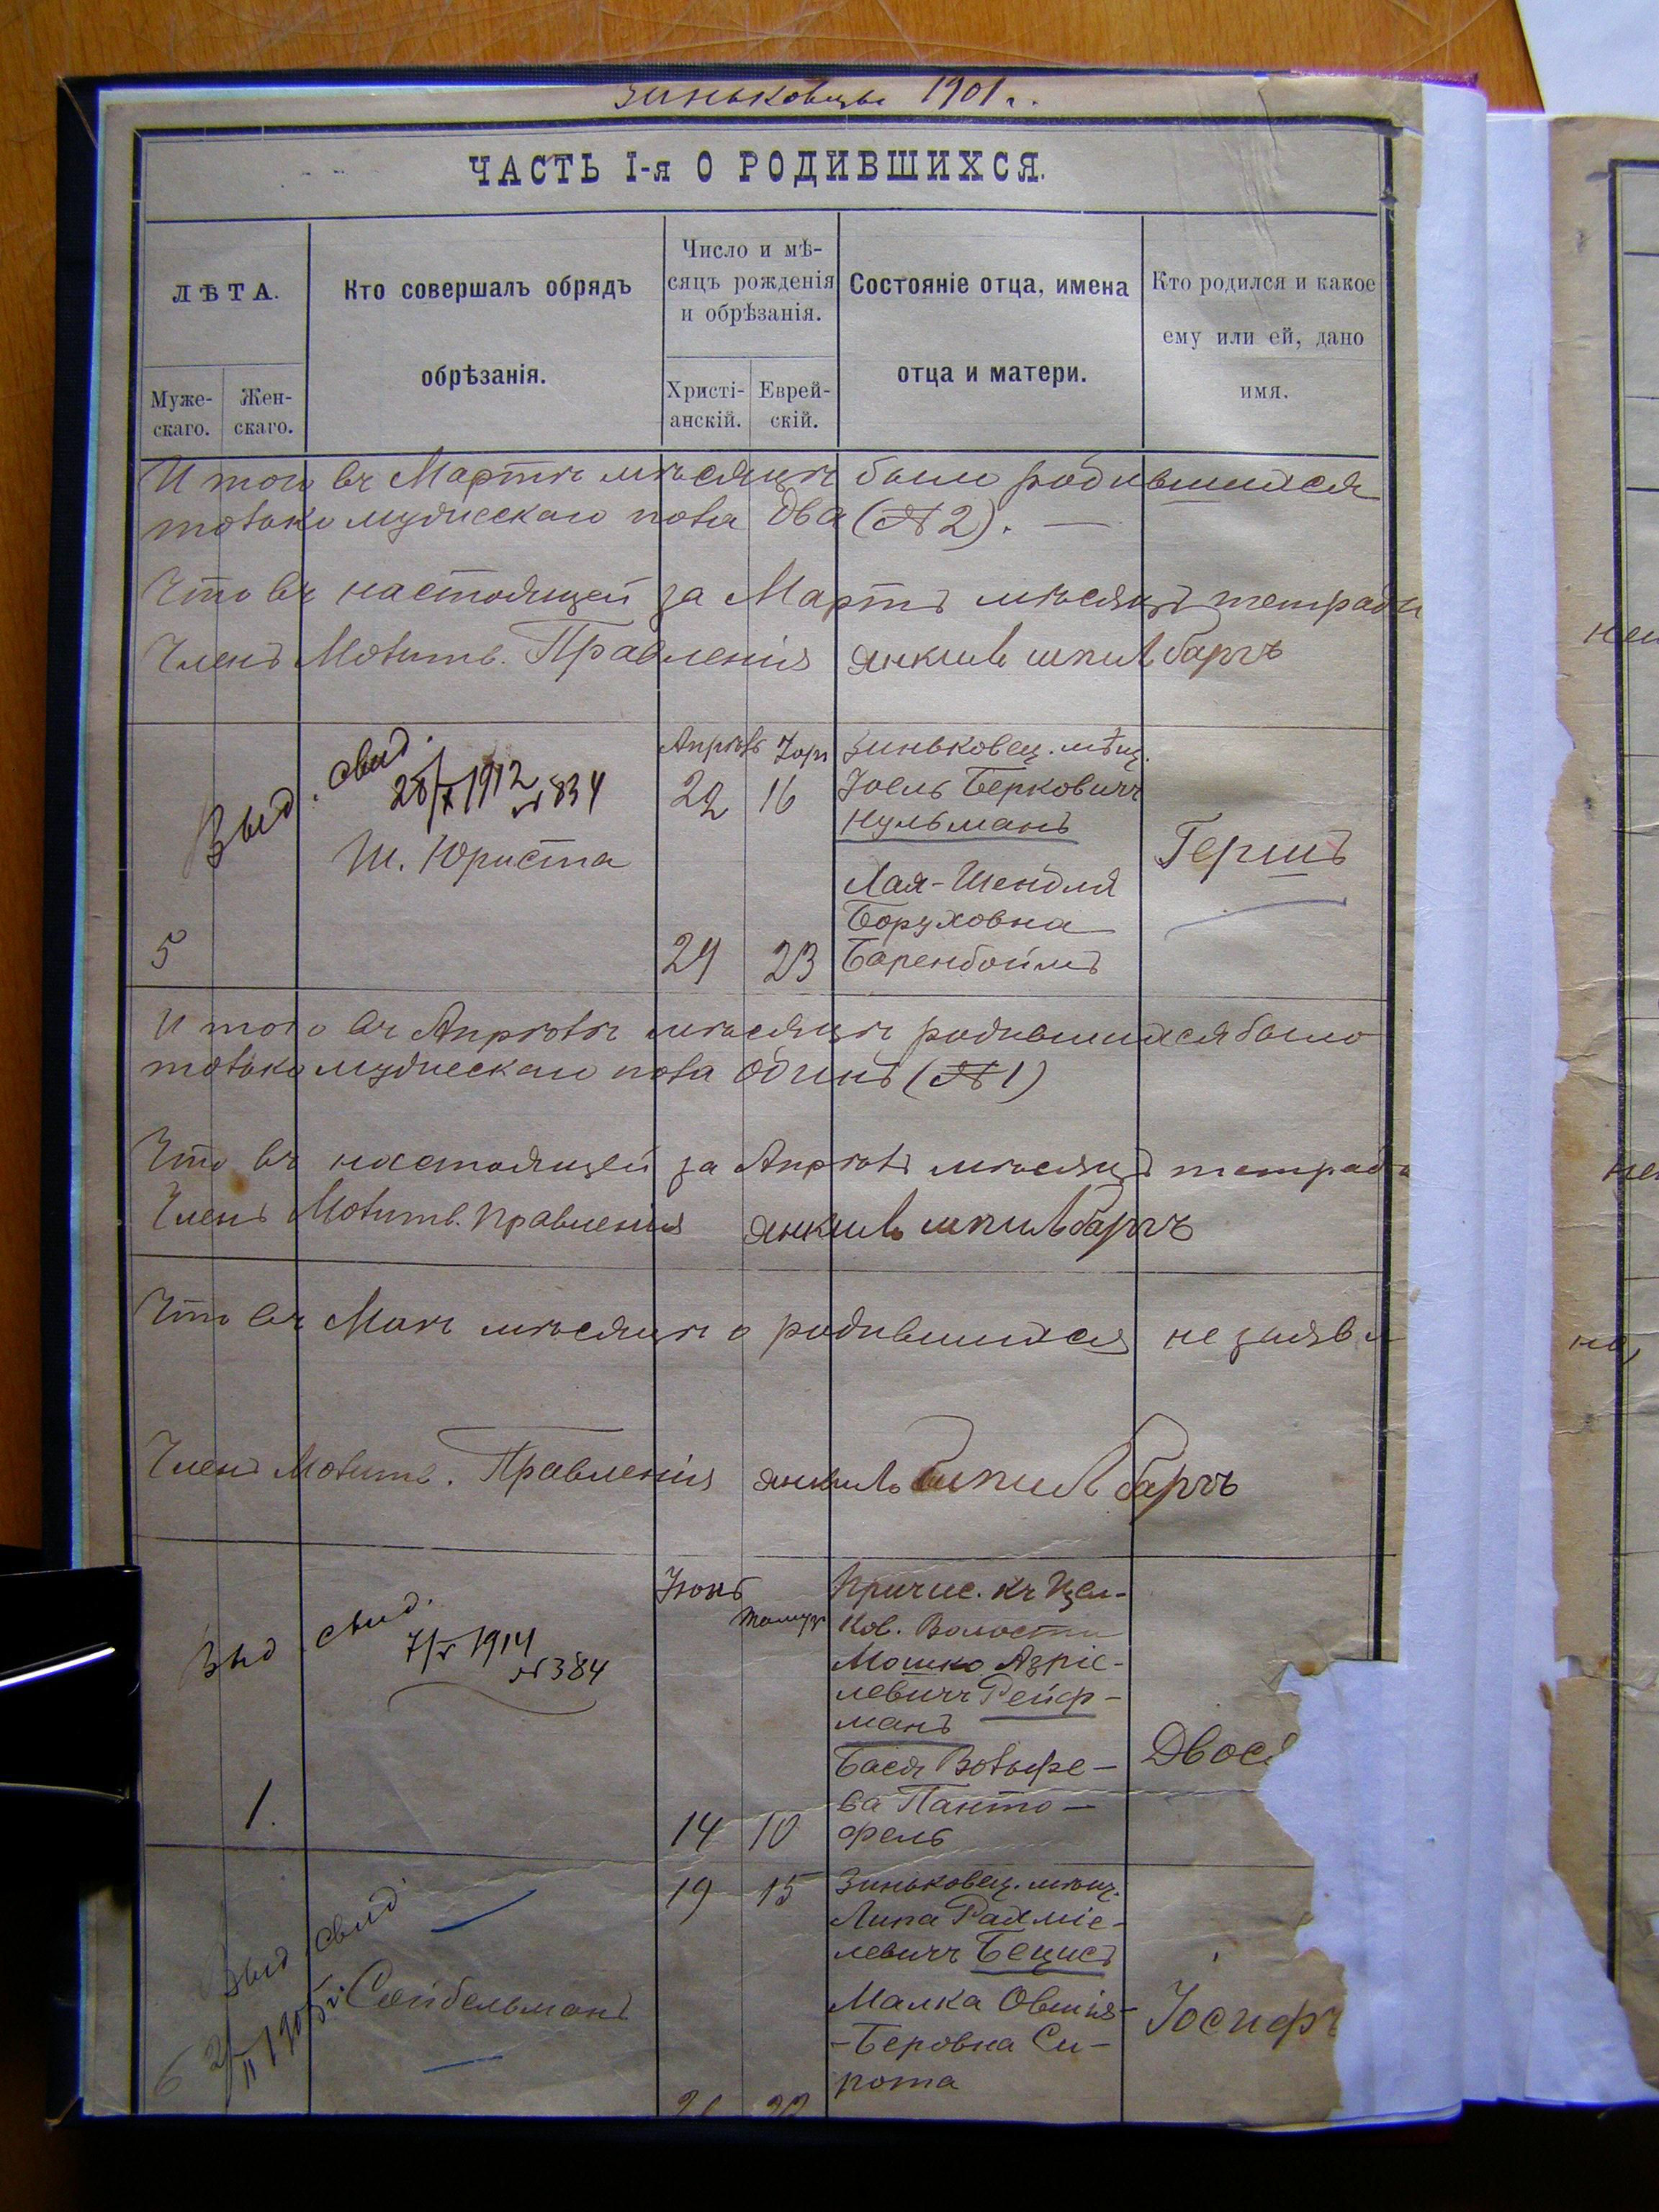 Зиньковцы 1901 г.
ЧАСТЬ I-я О РОДИВШИХСЯ.
ЛѢТА.
Муже-
скаго.
Жен-
скаго.
Кто совершалъ обрядъ
обрѣзанія.
Число и мѣ-
сяцъ рожденія
и обрѣзанія.
Христі-
анскій.
Еврей-
скій.
Состояніе отца, имена
отца и матери.
Кто родился и какое
ему или ей, дано
имя.
Итого въ Мартѣ мѣсяцѣ было родившихся
только мужескаго пола два (№ 2). —
Что въ настоящей за Мартъ мѣсяцъ тетради
Членъ Молитв. Правленія Янкиль Шпильбаргъ
Выд. свид.
28/X 1912
№ 834
Ш. Юриста
5
Апрѣль
22
29
16
23
Зиньковец. мѣщ.
Іоель Берковичъ
Нульманъ
Лая-Шендля
Боруховна
Баренбоймъ
Гершъ
Итого въ Апрѣлѣ мѣсяцѣ родившихся было
только мужескаго пола одинъ (№ 1)
Что въ настоящей за Апрѣль мѣсяцъ тетради
Членъ Молитв. Правленія Янкиль Шпильбаргъ
Что въ Маѣ мѣсяцѣ о родившихся не заявл
Членъ Молитв. Правленія Янкиль Шпильбаргъ
Выд. свид.
7/V 1914
№ 384
1.
Іюнь
Тамузъ
14
10
Причис. къ Цел-
ков. Волости
Мошко Азріе-
левичъ Рейф-
манъ
Бася Вольфо-
ва Панто-
фель
Двося
Выд. свид.
Сойбельманъ
6
19
15
Зиньковец. мѣщ.
Липа Рахміе-
левичъ Бецисъ
Малка Овшія-
-Беровна Си-
рота
Іосифъ